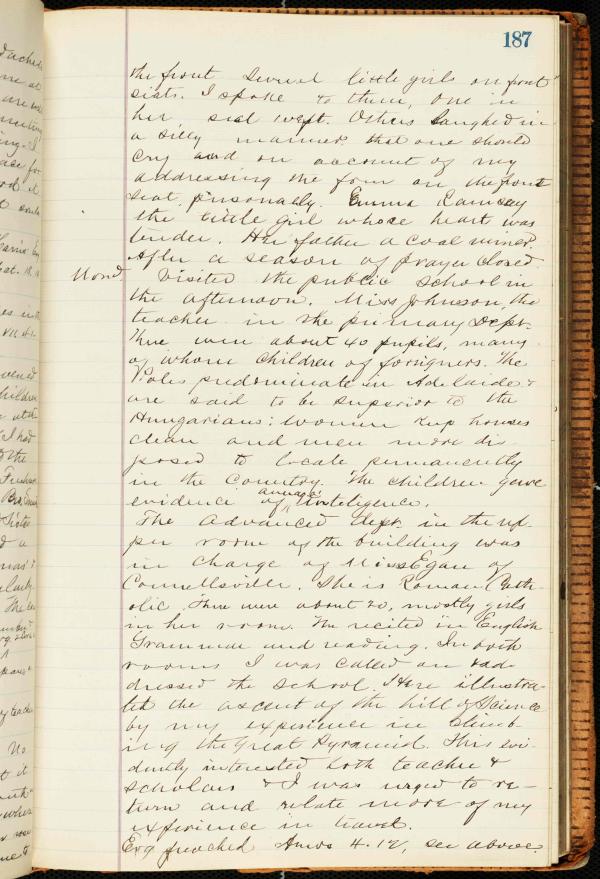 187
the front several little girls on front
seats. I spoke to them, one in
her seat wept. Others laughed in
a silly manner that one should
cry and on account of my
addressing the four on the front
seat, personally. Emma Ramsay
the little girl whose heart was
tender. Her father a coal miner.
After a season of prayer closed.
Mond. Visited the public school in
the afternoon. Miss Johnson, the
teacher in the primary Dept.
There were about 40 pupils, many
of whom children of foreigners. The
Poles predominate in Adelaide &
are said to be superior to the
Hungarians: women keep houses
clean and men more dis-
posed to locate permanently
in the Country. The children gave
evidence of average inteligence.
The advanced dept. in the up-
per room of the building was
in charge of Miss Egan of
Connellsville. She is Roman Cath-
olic. There were about 20, mostly girls
in her room. The recited in English
Grammar and reading. In both
rooms I was called on & ad-
dressed the school. Here illustra-
ted the ascent of the hill of Science
by my experience in climb-
ing the Great Pyramid. This evi-
dently interested both teacher &
scholars & I was urged to re-
turn and relate more of my
experience in travel.
Evg preached Amos 4.12, see above.